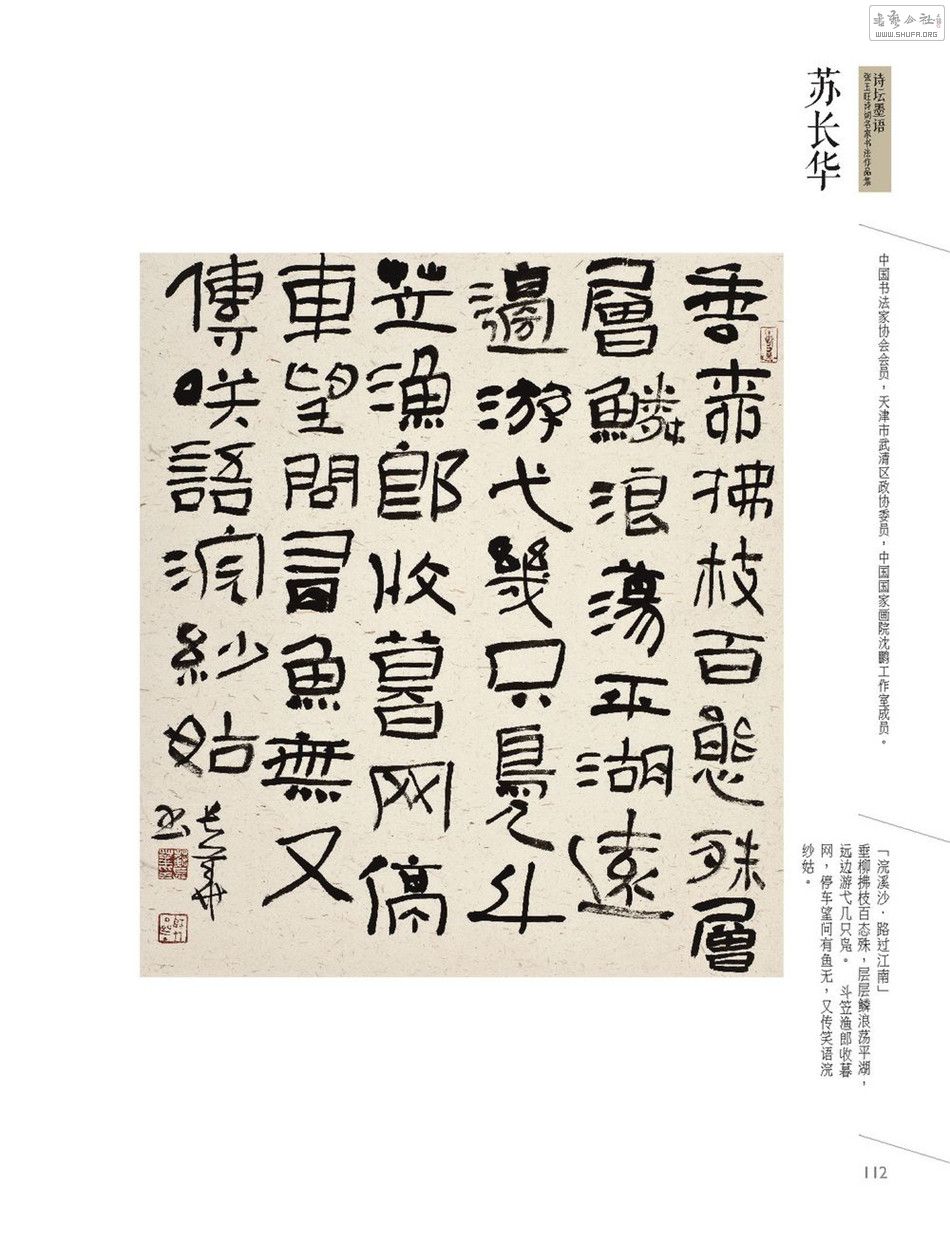 书艺公社
WWW.SHUFA.ORG
诗坛墨语
张玉旺诗词名家书法作品集
苏长华
中国书法家协会会员，天津市武清区政协委员，中国国家画院沈鹏工作室成员。
垂柳拂枝百態殊層
層鱗浪蕩平湖遠
邊游弋幾只鳧斗
笠漁郎收暮网停
車望問有魚無又
傳咲語浣紗姑
長華
书
「浣溪沙·路过江南」
垂柳拂枝百态殊，层层鳞浪荡平湖，
远边游弋几只凫。　斗笠渔郎收暮
网，停车望问有鱼无，又传笑语浣
纱姑。
112